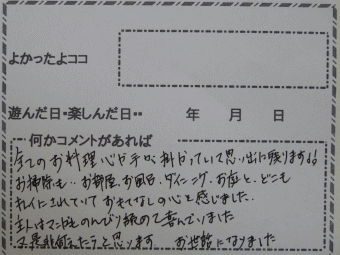 よかったよココ
遊んだ日・楽しんだ日・・ 年 月 日
何かコメントがあれば
全てのお料理、心と手が掛かっていて思い出に残ります
お掃除も‥お部屋、お風呂、ダイニング、お庭と、どこも
キレイにされていておもてなしの心を感じました。
主人は のんびり 喜んでいました
又是非伺えたらと思います お世話になりました